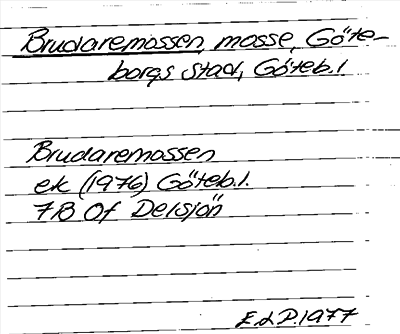 Brudaremossen, mosse, Göte-
borgs stad, Göteb. l.
Brudaremossen
ek (1976) Göteb. l.
7B 0f Delsjön
E.d.P. 1977